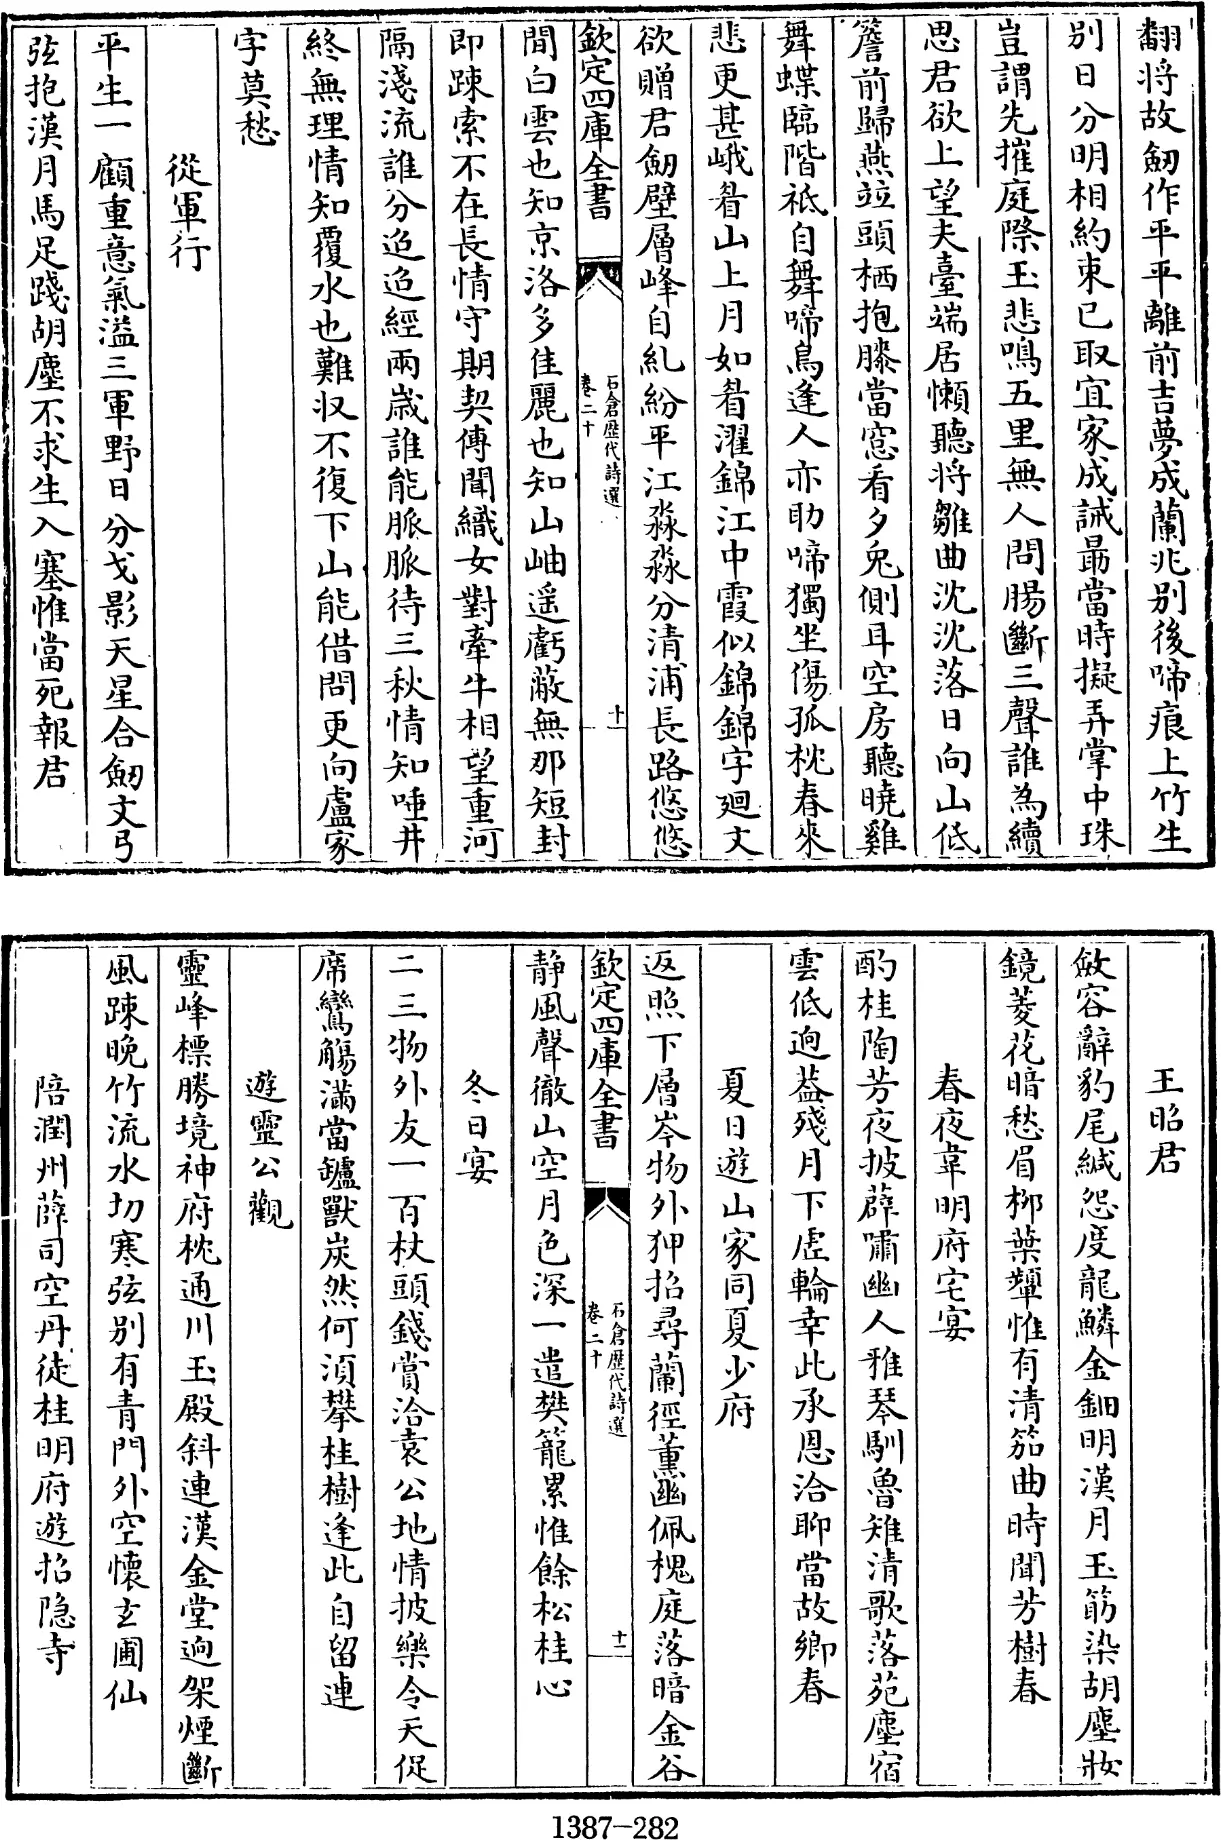 翻将故劒作平平離前吉夢成蘭兆别後啼痕上竹生
别日分明相約束已取宜家成誡最當時擬弄掌中珠
豈謂先摧庭際玉悲鳴五里無人問腸斷三聲誰為續
思君欲上望夫臺端居懶聽将雛曲沈沈落日向山低
簷前歸燕竝頭栖抱膝當窓看夕兎側耳空房聽曉雞
舞蝶臨階祗自舞啼鳥逢人亦助啼獨坐傷孤枕春來
悲更甚峨眉山上月如眉濯錦江中霞似錦錦字廻文
欲贈君劒壁層峰自糺紛平江淼淼分清浦長路悠悠
欽定四庫全書
石倉歷代詩選
卷二十
十一
間白雲也知京洛多佳麗也知山岫遥虧蔽無那短封
即踈索不在長情守期契傳聞織女對牽牛相望重河
隔淺流誰分迢迢經兩歳誰能脈脈待三秋情知唾井
終無理情知覆水也難収不復下山能借問更向盧家
字莫愁
從軍行
平生一顧重意氣溢三軍野日分戈影天星合劒文弓
弦抱漢月馬足踐胡塵不求生入塞惟當死報君
王昭君
斂容辭豹尾緘怨度龍鱗金鈿明漢月玉筯染胡塵妝
鏡菱花暗愁眉栁葉顰惟有清笳曲時聞芳樹春
春夜韋明府宅宴
酌桂陶芳夜披薜嘯幽人雅琴馴魯雉清歌落苑塵宿
雲低迥葢殘月下虛輪幸此承恩洽聊當故鄉春
夏日遊山家同夏少府
返照下層岑物外狎招尋蘭徑薰幽佩槐庭落暗金谷
欽定四庫全書
石倉歷代詩選
卷二十
十二
静風聲徹山空月色深一遣樊籠累惟餘松桂心
冬日宴
二三物外友一百杖頭錢賞洽袁公地情披樂令天促
席鸞觴滿當鑪獸炭然何須攀桂樹逢此自留連
遊靈公觀
靈峰標勝境神府枕通川玉殿斜連漢金堂迥架煙斷
風踈晚竹流水切寒弦别有青門外空懷玄圃仙
陪潤州薛司空丹徒桂明府遊招隐寺
1387-282